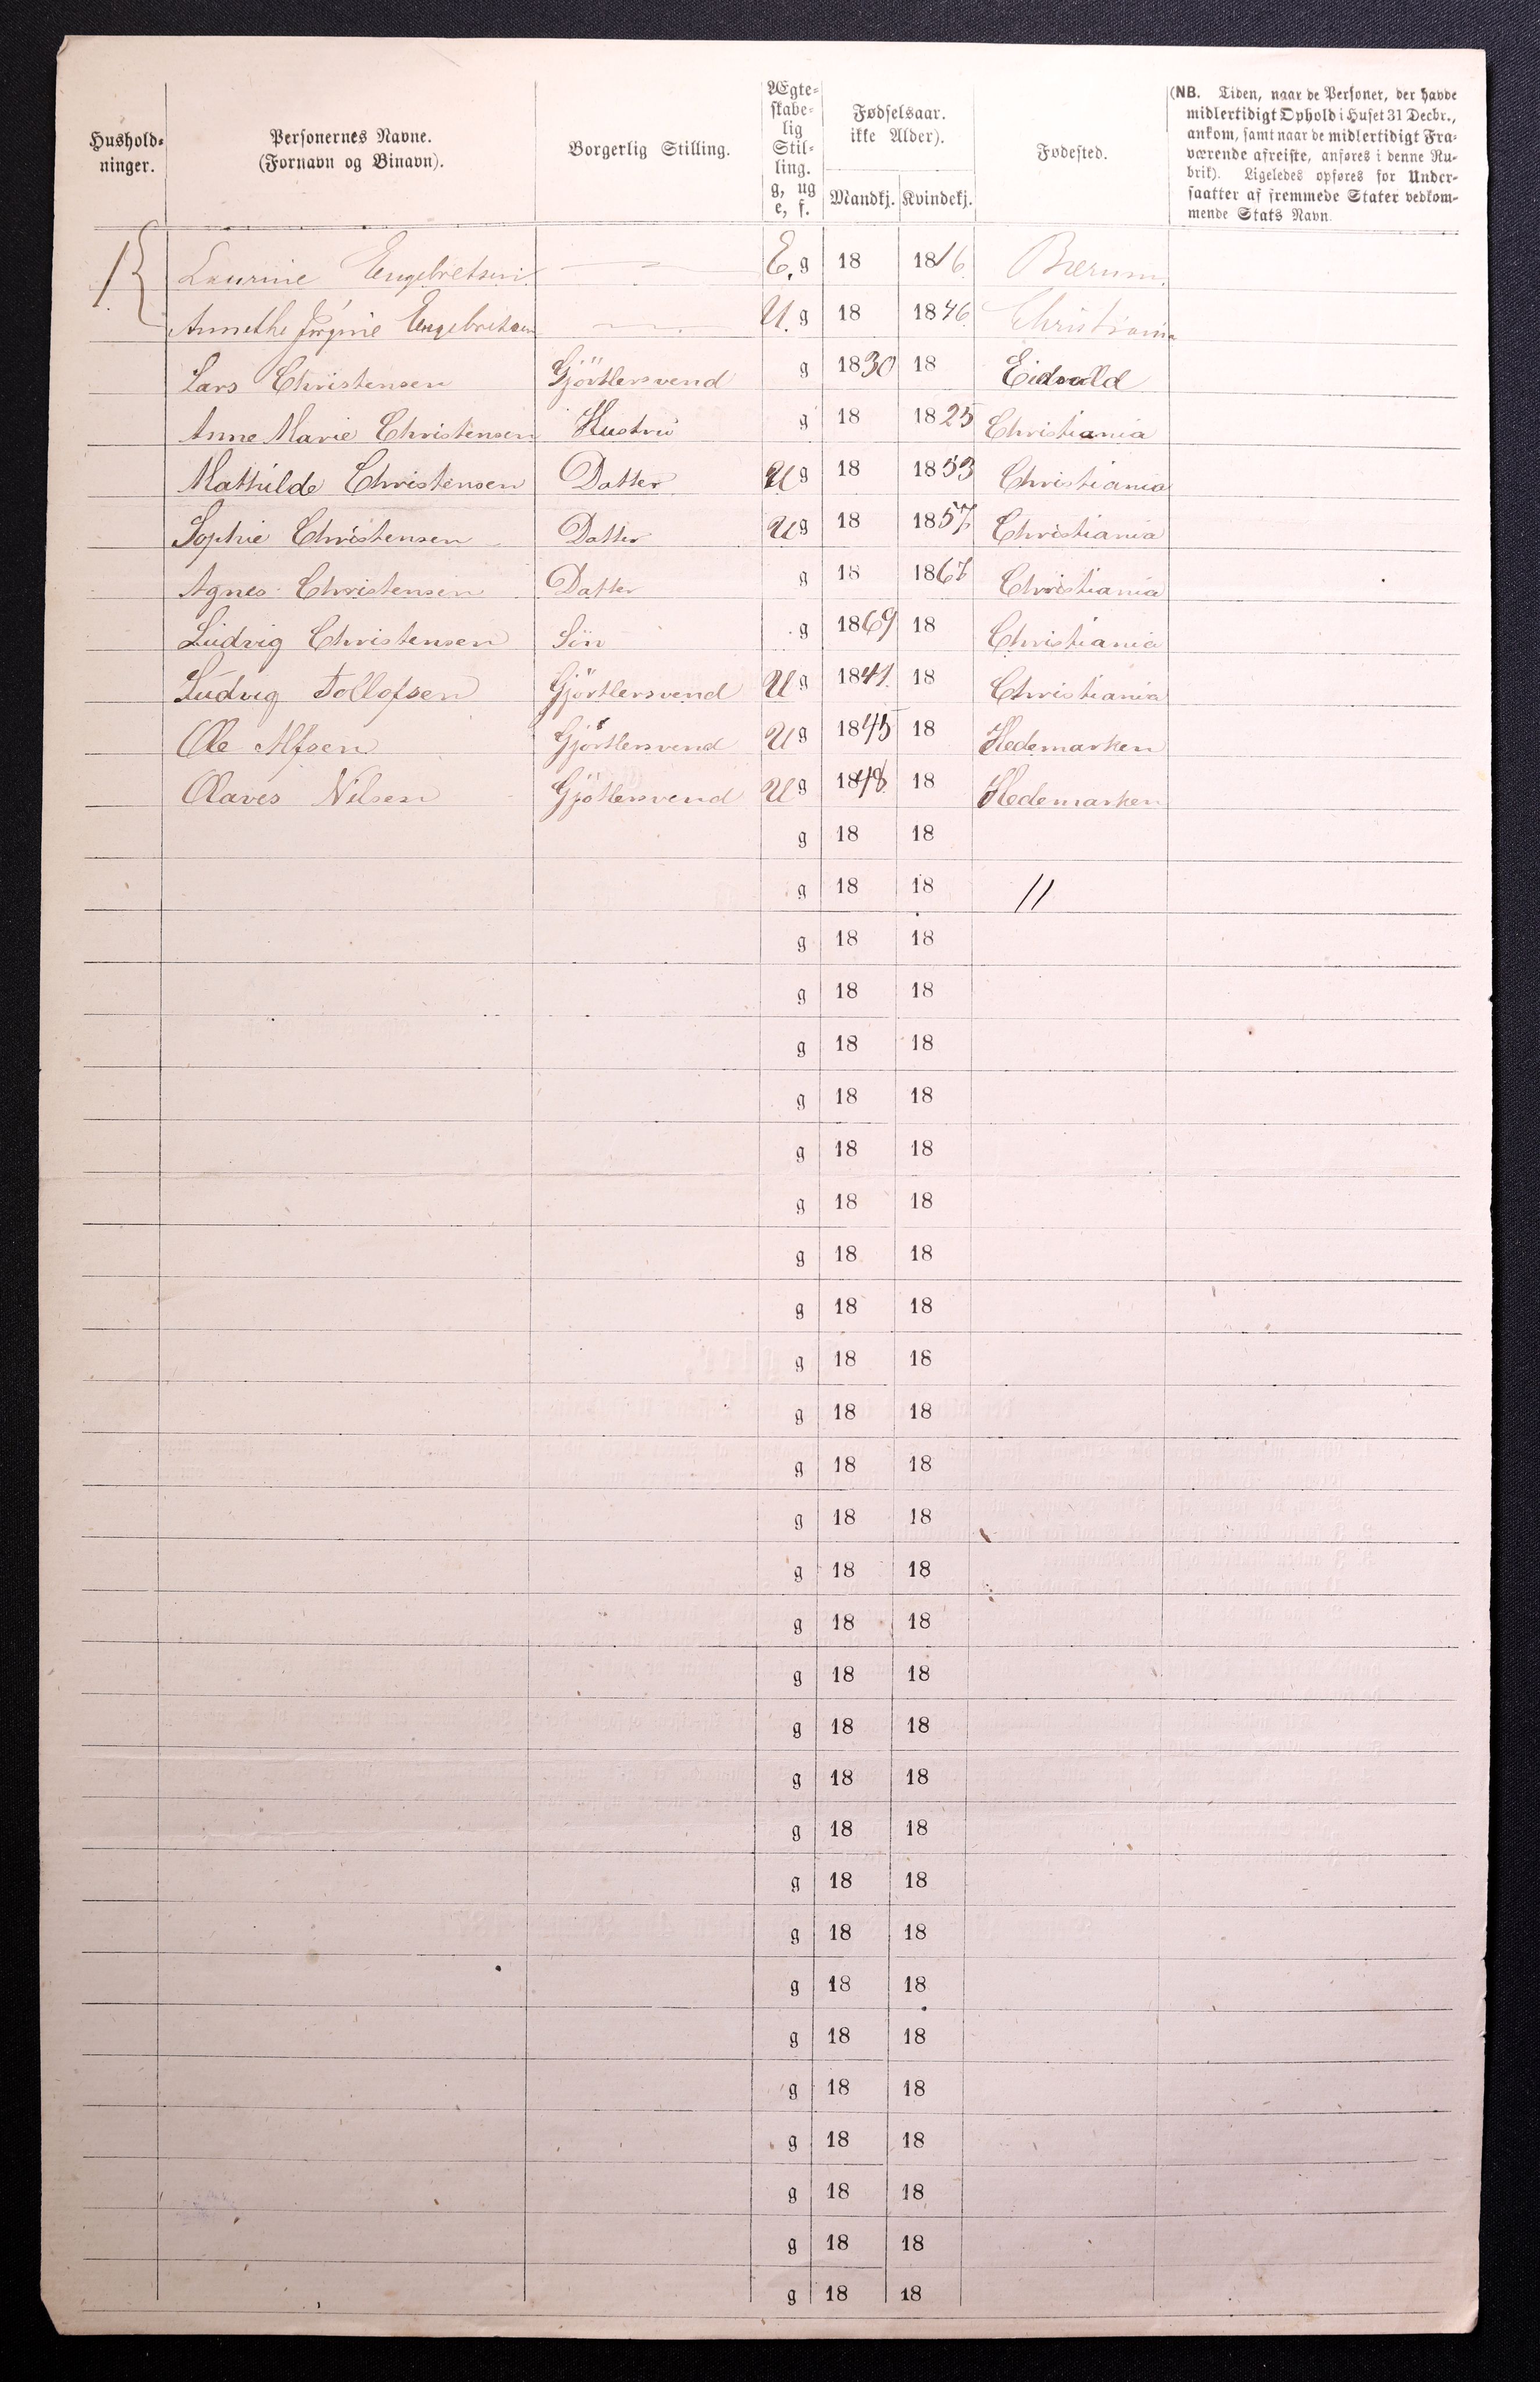 Hushold-
ninger.
Personernes Navne.
(Fornavn og Binavn).
Borgerlig Stilling.
Ægte-
skabe-
lig
Stil-
ling.
g, ug
e, f.
Fødselsaar.
ikke Alder).
Mandkj. Kvindekj.
Fødested.
(NB. Tiden, naar de Personer, der havde
midlertidigt Ophold i Huset 31 Decbr.,
ankom, samt naar de midlertidigt Fra-
værende afreiste, anføres i denne Ru-
brik). Ligeledes opføres for Under-
saatter af fremmede Stater vedkom-
mende Stats Navn.
1 Laurine Engebretsen E. g 18 1816 Bærum.
Annethe Jørgine Engebretsen U. g 18 1846 Christiania
Lars Christensen Gjörtlersvend g 1830 18 Eidvold
Anne Marie Christensen Hustru g 18 1825 Christiania
Mathilde Christensen Datter U g 18 1853 Christiania
Sophie Christensen Datter U g 18 1857 Christiania
Agnes Christensen Datter g 18 1867 Christiania
Ludvig Christensen Sön g 1869 18 Christiania
Ludvig Tollofsen Gjörtlersvend U g 1841. 18 Christiania
Ole Alfsen Gjörtlersvend U g 1845 18 Hedemarken
Olaves Nilsen Gjötlersvend U g 1848 18 Hedemarken
g 18 18
g 18 18 11
g 18 18
g 18 18
g 18 18
g 18 18
g 18 18
g 18 18
g 18 18
g 18 18
g 18 18
g 18 18
g 18 18
g 18 18
g 18 18
g 18 18
g 18 18
g 18 18
g 18 18
g 18 18
g 18 18
g 18 18
g 18 18
g 18 18
g 18 18
g 18 18
g 18 18
g 18 18
g 18 18